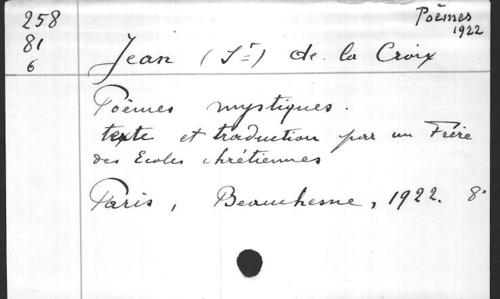 258
81
6
Poèmes
1922
Jean (St) de la Croix
Poèmes mystiques.
texte et traduction par un Frère
des Ecoles chrétiennes
Paris, Beauchesne, 1922. 8°